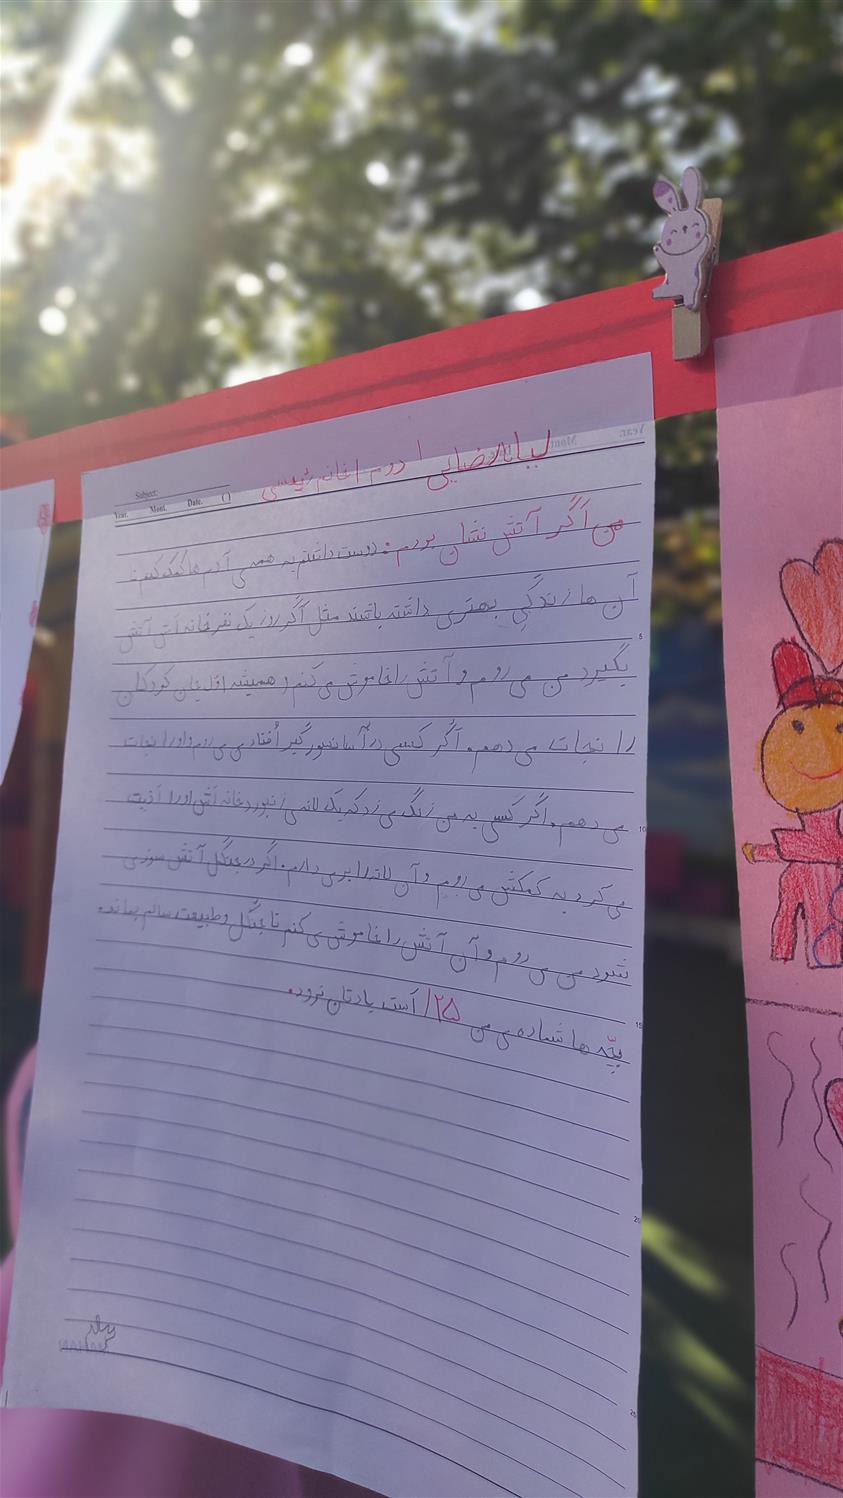 لیانا رضایی / دوم / خانم رئیسی
Subject:
Year. Mont. Date. ( )
من اگر آتش نشان بودم: دوست داشتم به همه‌ی آدم ها کمک کنم.
آن ها زندگی بهتری داشته باشند مثل اگر روز یک نفر خانه اَش آتش
بگیرد من می روم و آتش را خاموش می کنم و همیشه اوّل جان کودکان
را نجات می دهم. اگر کسی در آسانسور گیر اُفتاد می روم و او را نجات
می دهم. اگر کسی به من زنگ می زد که یک لانه‌ی زنبور در خانه اَش او را اَذیت
می کرد به کمکش می روم و آن لانه را بر می دارم. اگر در جنگل آتش سوزی
شود من می روم و آن آتش را خاموش می کنم تا جنگل و طبیعت سالم بماند.
بچّه ها شماره ی من ۱۲۵ اَست یادتان نرود.
5
10
15
20
25